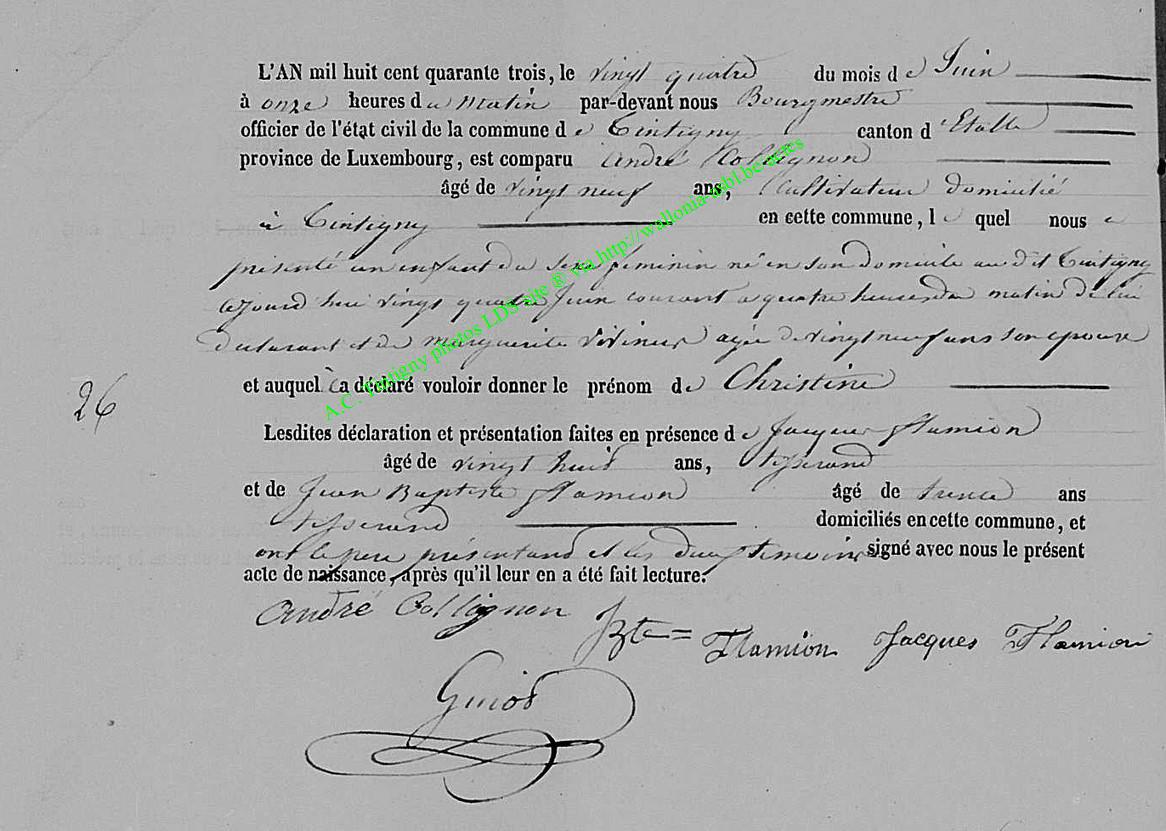 L'AN mil huit cent quarante trois, le vingt quatre du mois de Juin
à onze heures du matin par-devant nous Bourgmestre
officier de l'état civil de la commune de Tintigny canton d'Etalle
province de Luxembourg, est comparu André Collignon
âgé de vingt neuf ans, Cultivateur domicilié
à Tintigny en cette commune, lequel nous a
présenté un enfant du sexe féminin né en son domicile au dit Tintigny
cejourd'hui vingt quatre Juin courant a quatre heures du matin de lui
declarant et de Marguerite agée de vingt neuf ans son epouse
et auquel il a déclaré vouloir donner le prénom de Christine
26
Lesdites déclaration et présentation faites en présence de Jacques Flamion
âgé de vingt huit ans, tisserand
et de Jean Baptiste Flamion âgé de trente ans
tisserand domiciliés en cette commune, et
ont le pere présentand et les deux temoins signé avec nous le présent
acte de naissance, après qu'il leur en a été fait lecture.
André Collignon
JBte= Flamion Jacques Flamion
Guiot
A.C. Tintigny photos LDS site ® via http://wallonia-asbl.be/actes